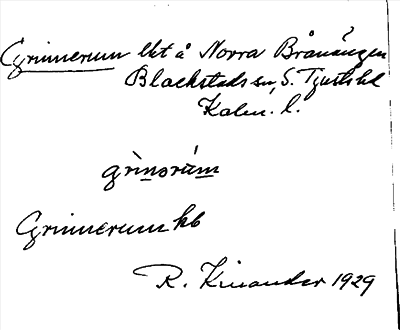 Grinnerum lht å Norra Brånängen
Blackstads sn, S. Tjusts hd
Kalm. l.
grìnorúm
Grinnerum kb
R. Kinander 1929